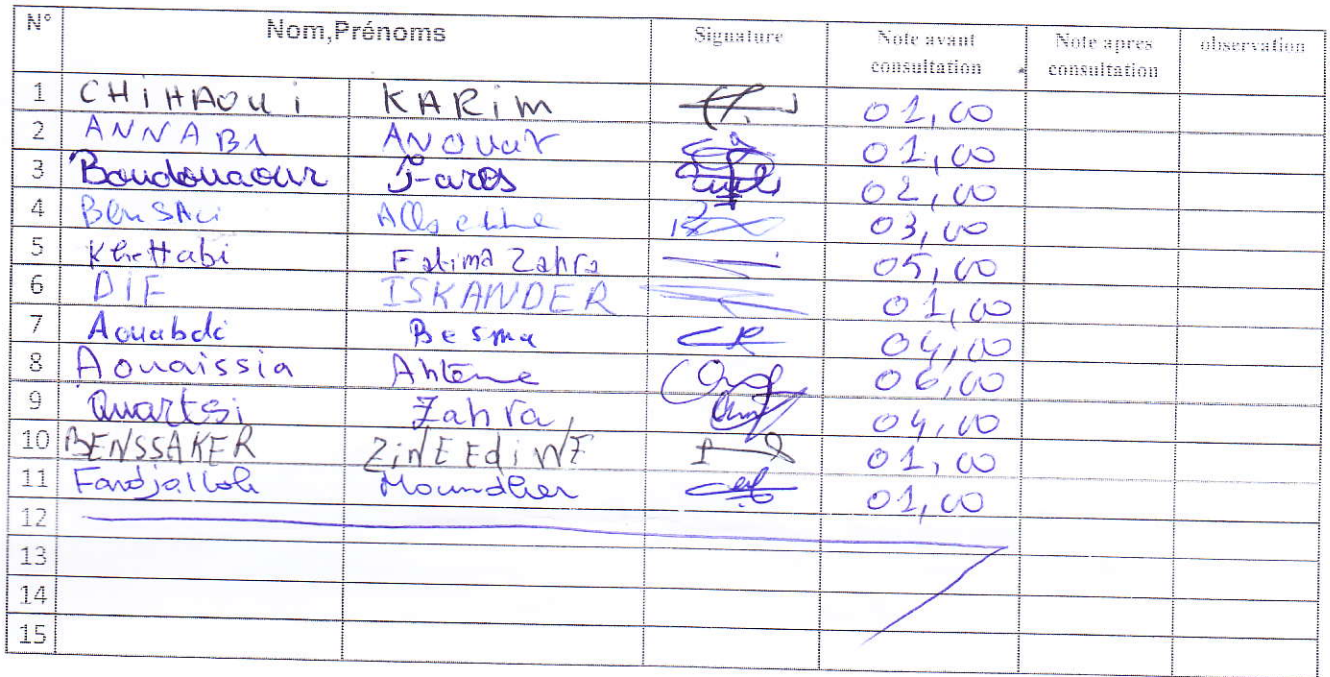 N° Nom,Prénoms Signature Note avant consultation Note apres consultation observation
1 CHiHAOUi KARiM 01,00
2 ANNABi ANOUAR 01,00
3 Boudouaour Fares 02,00
4 BenSAci 03,00
5 Khettabi Fatima Zahra 05,00
6 DiF ISKANDER 01,00
7 Aouabdi Besma 04,00
8 Aouaissia Ahlème 06,00
9 Ouartsi Zahra 04,00
10 BENSSAKER ZiNE EdiNE 01,00
11 Moundher 01,00
12
13
14
15